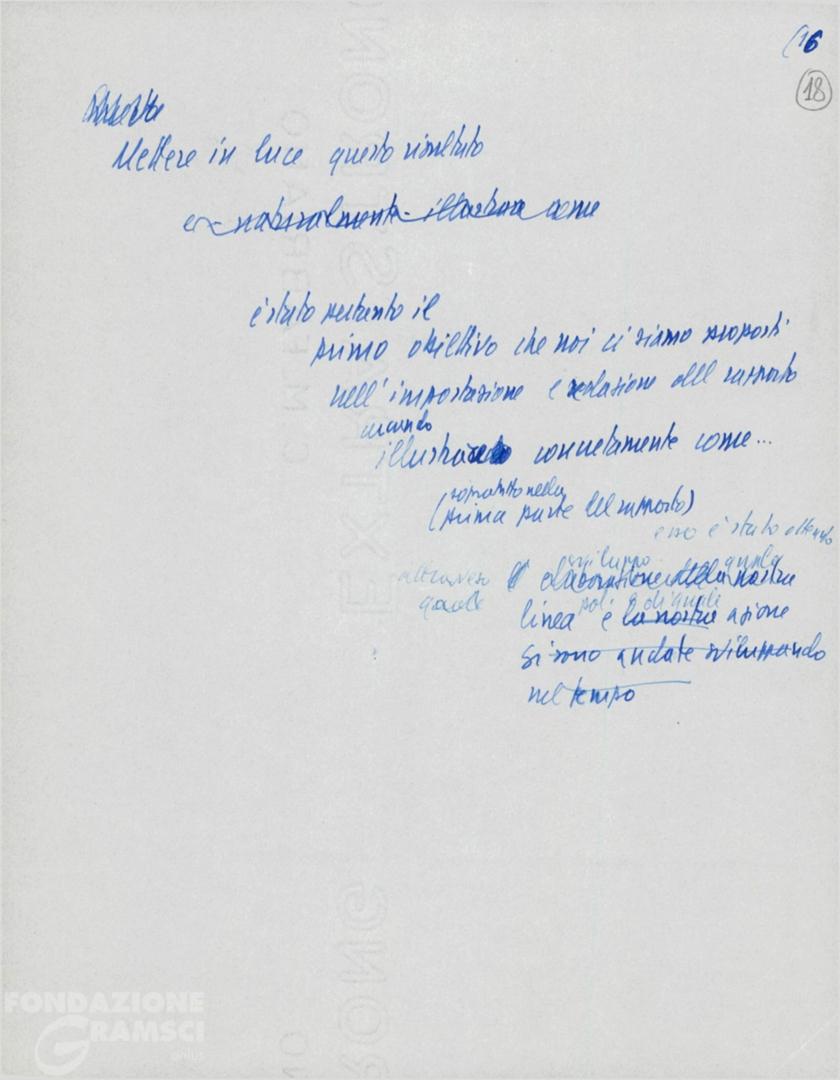 (16
18
Mettere in luce questo risultato
e naturalmente illustrare come
è stato pertanto il
primo obiettivo che noi ci siamo proposti
nell'impostazione e redazione del rapporto
illustrando concretamente come...
(soprattutto nella
prima parte del rapporto)
esso è stato ottenuto
attraverso
sviluppo quale
quale
elaborazione della nostra
linea e la nostra azione
pol e di quale
si sono andate sviluppando
nel tempo
FONDAZIONE
GRAMSCI
onlus